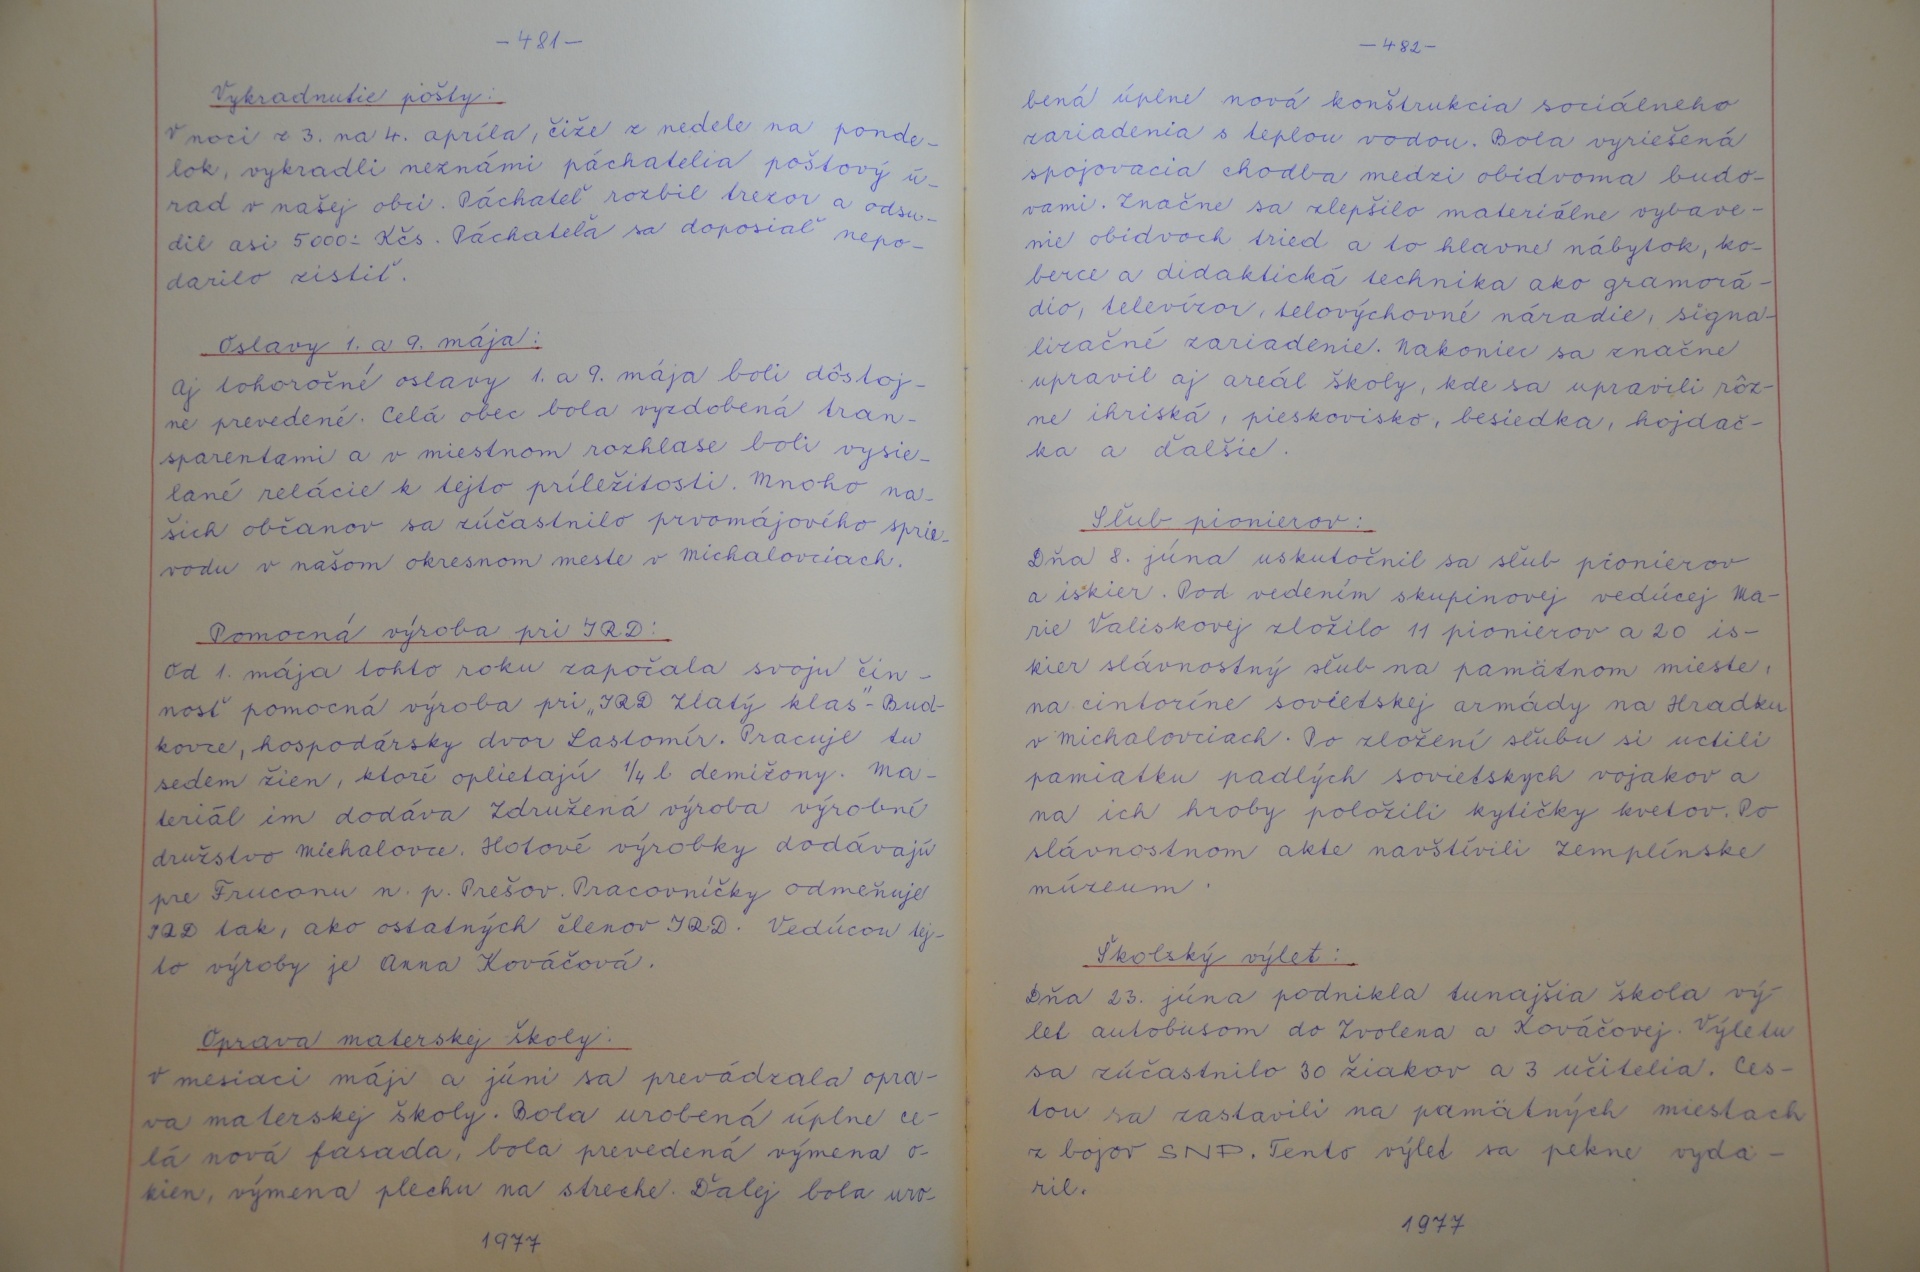 –481–
Vykradnutie pošty:
V noci z 3. na 4. apríla, čiže z nedele na ponde-
lok, vykradli neznámi páchatelia poštový ú-
rad v našej obci. Páchateľ rozbil trezor a odcu-
dil asi 5000.- Kčs. Páchateľa sa doposiaľ nepo-
darilo zistiť.
Oslavy 1. a 9. mája:
Aj tohoročné oslavy 1. a 9. mája boli dôstoj-
ne prevedené. Celá obec bola vyzdobená tran-
sparentami a v miestnom rozhlase boli vysie-
lané relácie k tejto príležitosti. Mnoho na-
šich občanov sa zúčastnilo prvomájového sprie-
vodu v našom okresnom meste v Michalovciach.
Pomocná výroba pri JRD:
Od 1. mája tohto roku započala svoju čin-
nosť pomocná výroba pri „JRD Zlatý klas"- Bud-
kovce, hospodársky dvor Lastomír. Pracuje tu
sedem žien, ktoré oplietajú 1/4 l demižony. Ma-
teriál im dodáva Združená výroba výrobní
družstvo Michalovce. Hotové výrobky dodávajú
pre Fruconu n. p. Prešov. Pracovníčky odmeňuje
JRD tak, ako ostatných členov JRD. Vedúcou tej-
to výroby je Anna Kováčová.
Oprava materskej školy:
V mesiaci máji a júni sa prevádzala opra-
va materskej školy. Bola urobená úplne ce-
lá nová fasada, bola prevedená výmena o-
kien, výmena plechu na streche. Ďalej bola uro-
1977
–482–
bená úplne nová konštrukcia sociálneho
zariadenia s teplou vodou. Bola vyriešená
spojovacia chodba medzi obidvoma budo-
vami. Značne sa zlepšilo materiálne vybave-
nie obidvoch tried a to hlavne nábytok, ko-
berce a didaktická technika ako gramorá-
dio, televízor, telovýchovné náradie, signa-
lizačné zariadenie. Nakoniec sa značne
upravil aj areál školy, kde sa upravili rôz-
ne ihriská, pieskovisko, besiedka, hojdač-
ka a ďalšie.
Sľub pionierov:
Dňa 8. júna uskutočnil sa sľub pionierov
a iskier. Pod vedením skupinovej vedúcej Ma-
rie Valiskovej zložilo 11 pionierov a 20 is-
kier slávnostný sľub na pamätnom mieste,
na cintoríne sovietskej armády na Hradku
v Michalovciach. Po zložení sľubu si uctili
pamiatku padlých sovietskych vojakov a
na ich hroby položili kytičky kvetov. Po
slávnostnom akte navštívili Zemplínske
múzeum.
Školský výlet:
Dňa 23. júna podnikla tunajšia škola vý-
let autobusom do Zvolena a Kováčovej. Výletu
sa zúčastnilo 30 žiakov a 3 učitelia. Ces-
tou sa zastavili na pamätných miestach
z bojov SNP. Tento výlet sa pekne vyda-
ril.
1977